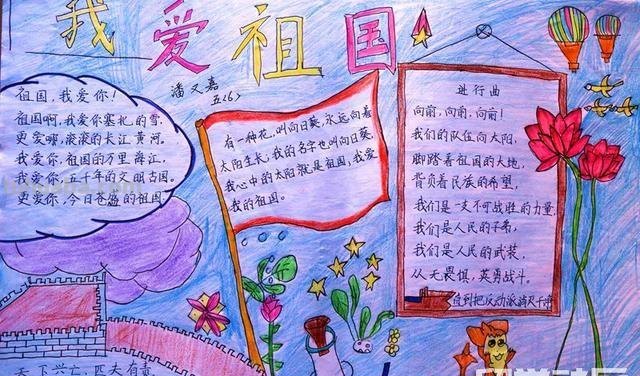 我爱祖国
潘又嘉
五(6)
祖国,我爱你!
祖国啊,我爱你塞北的雪.
更爱哪,滚滚的长江黄河。
我爱你,祖国的万里海江,
我爱你,五千年的文明古国。
更爱你,今日苍盛的祖国.
有一种花,叫向日葵,永远向着
太阳生长,我的名字也叫向日葵.
我心中的太阳就是祖国,我爱
我的祖国.
进行曲
向前,向前,向前!
我们的队伍向太阳,
脚踏着祖国的大地,
背负着民族的希望,
我们是一支不可战胜的力量.
我们是人民的子弟,
我们是人民的武装,
从无畏惧,英勇战斗.
直到把反动派消灭干净
天下兴亡,匹夫有责